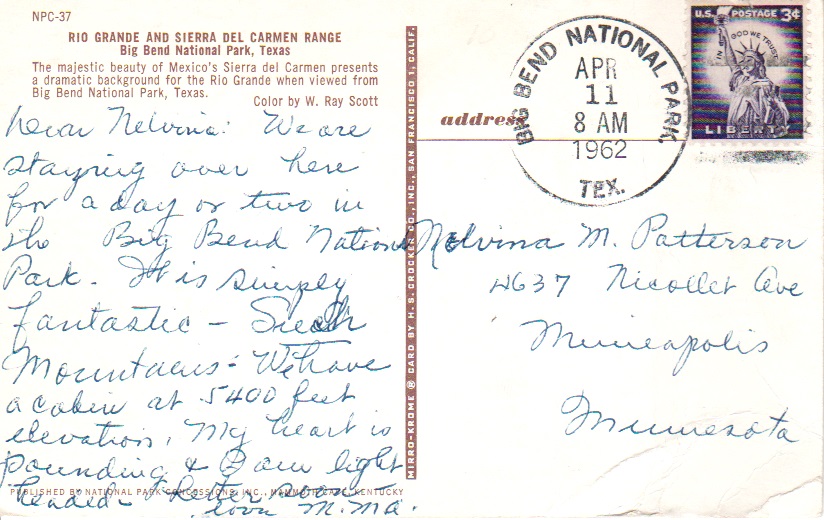 NPC-37
RIO GRANDE AND SIERRA DEL CARMEN RANGE
Big Bend National Park, Texas
The majestic beauty of Mexico's Sierra del Carmen presents
a dramatic background for the Rio Grande when viewed from
Big Bend National Park, Texas.
Color by W. Ray Scott
Dear Nelvina: We are
staying over here
for a day or two in
the Big Bend National
Park. It is simply
fantastic - Such
Mountains - We have
a cabin at 5400 feet
elevation. My heart is
pounding & I am light
headed - Letter soon
Love M. Ma.
PUBLISHED BY NATIONAL PARK CONCESSIONS, INC., MAMMOTH CAVE, KENTUCKY
MIRRO-KROME ® CARD BY H. S. CROCKER CO., INC., SAN FRANCISCO 1, CALIF.
address
BIG BEND NATIONAL PARK,
APR
11
8 AM
1962
TEX.
U.S. POSTAGE 3¢
IN GOD WE TRUST
LIBERTY
Nelvina M. Patterson
4637 Nicollet Ave
Minneapolis
Minnesota